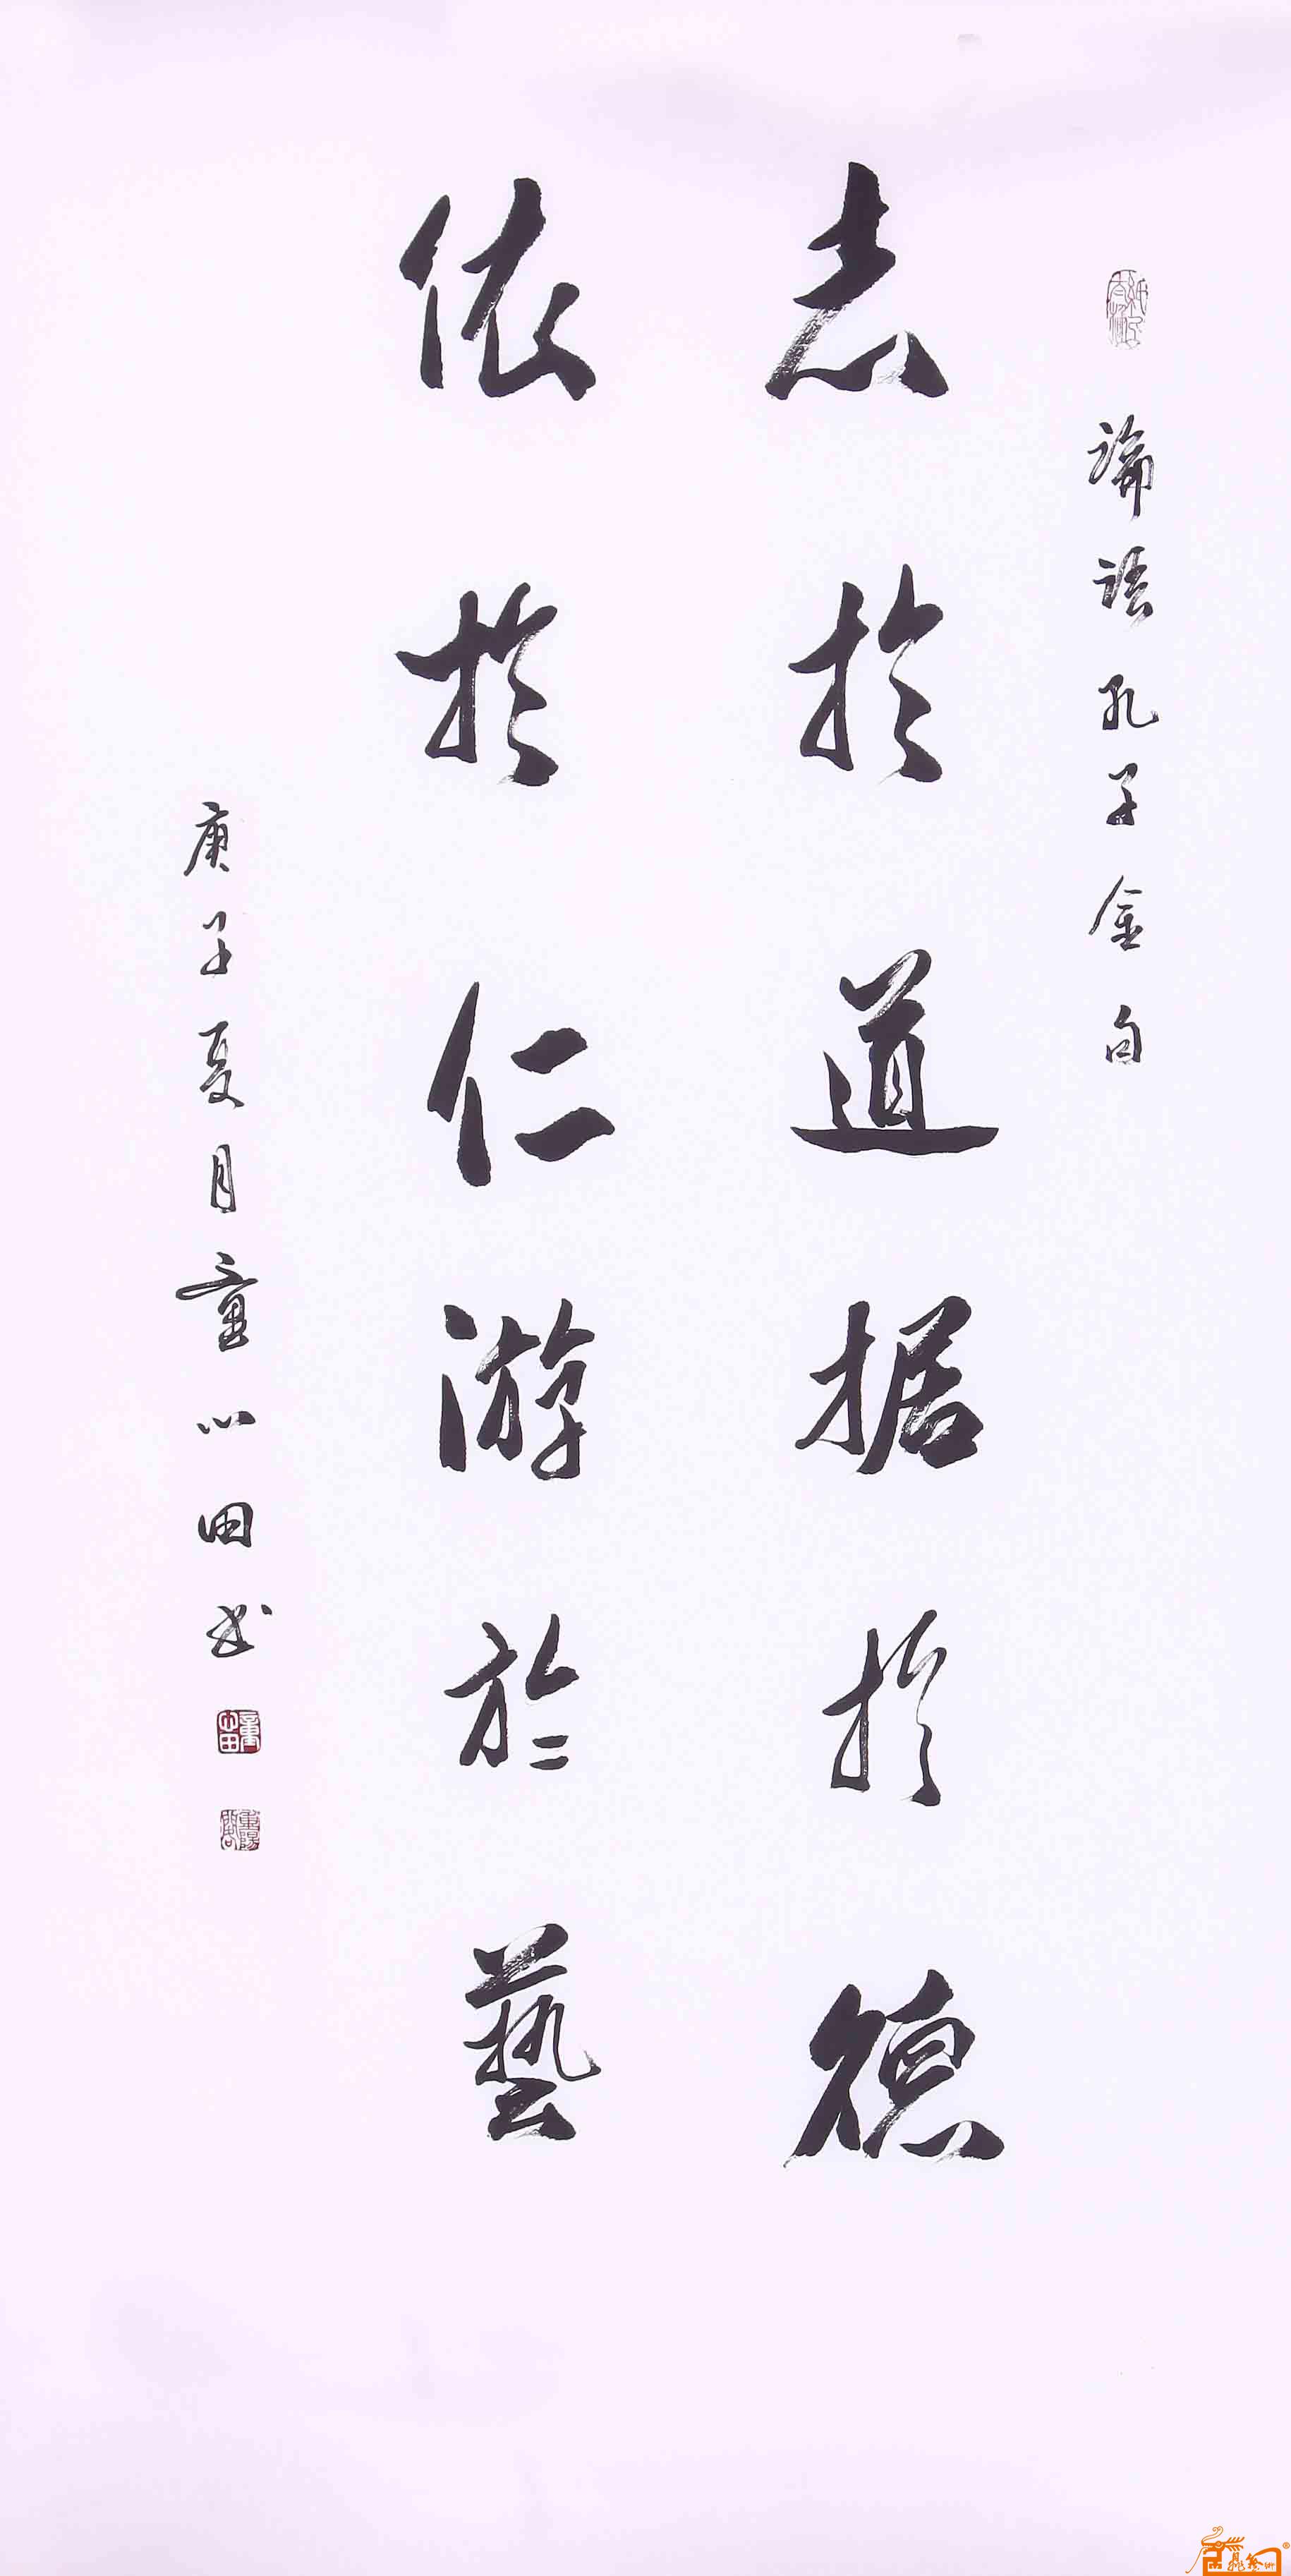 論語孔子金句
志於道据於德
依於仁游於藝
庚子夏月童心田书
童心田